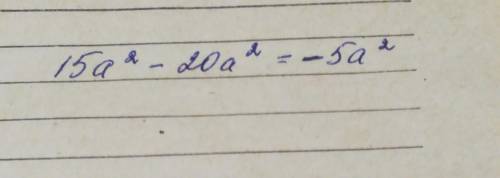 15a² - 20a² = -5a²